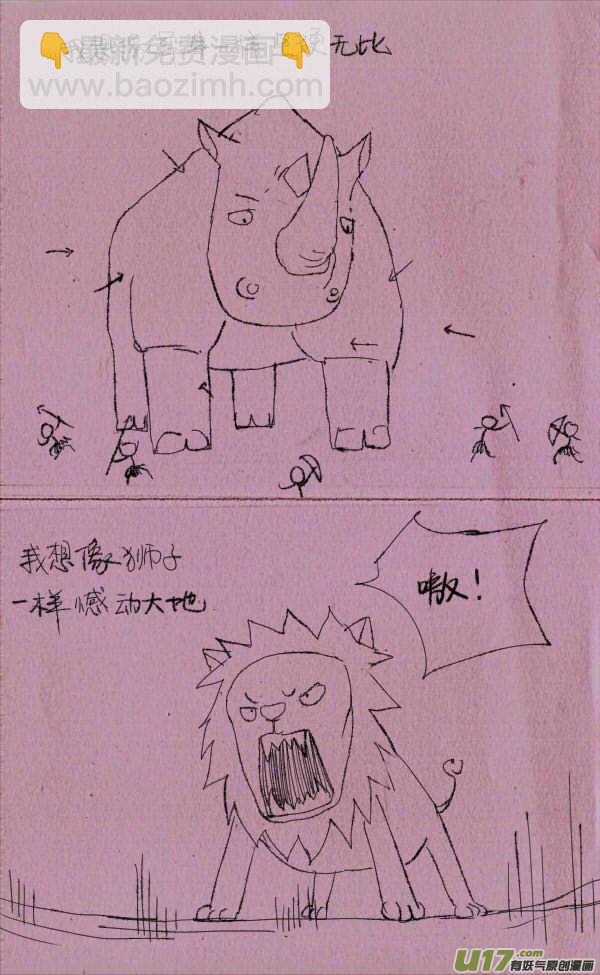 最新免费漫画
www.baozimh.com
无比
我想像狮子
一样憾动大地
嗷！
U17.com
有妖气原创漫画